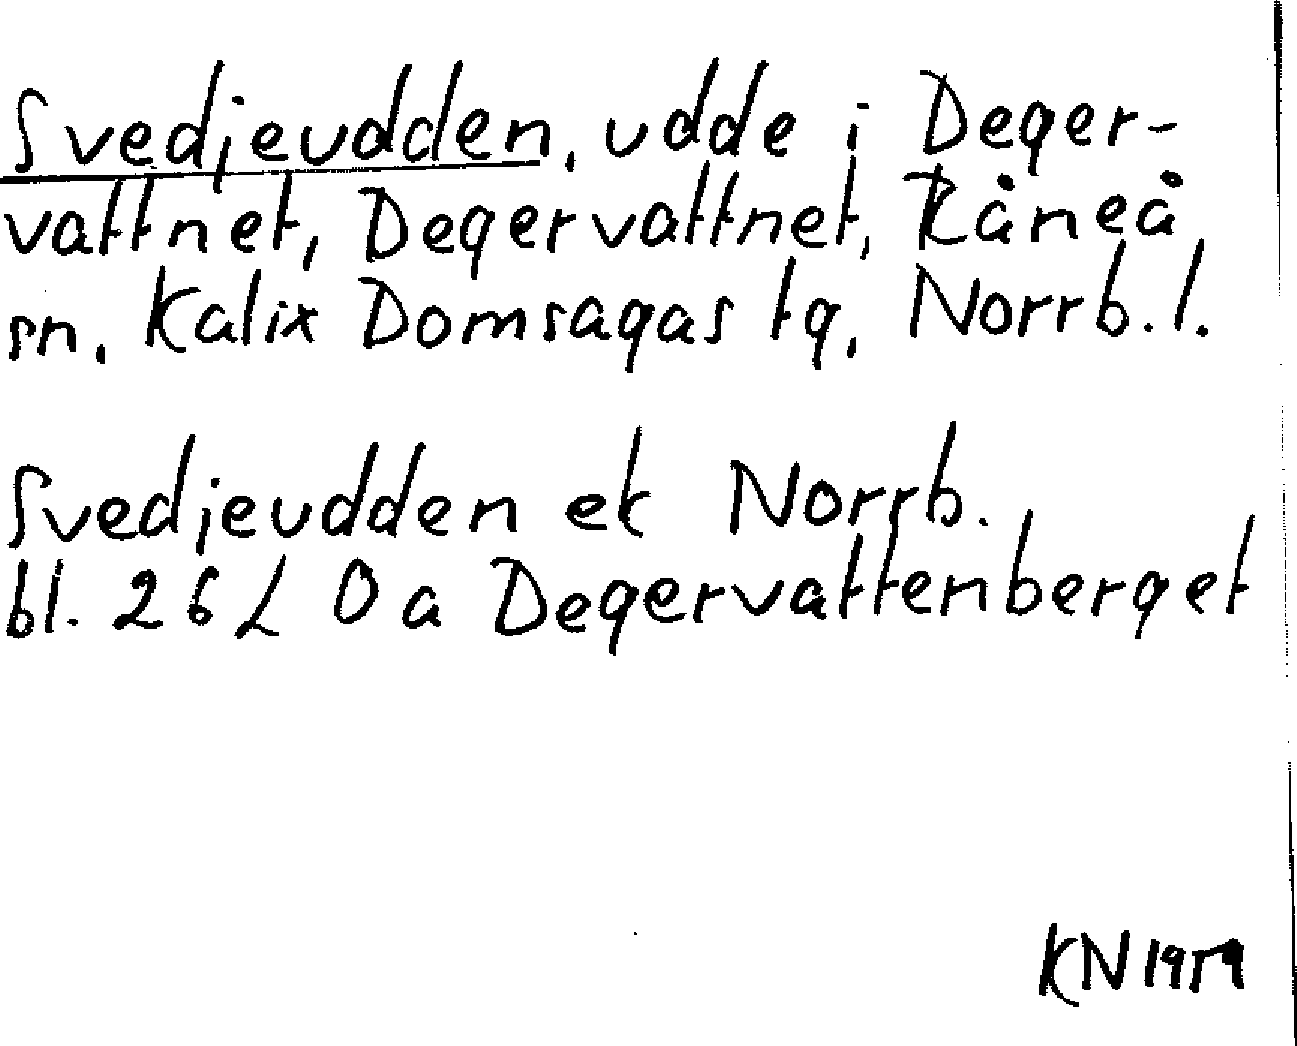 Svedjeudden, udde i Deger-
vattnet, Degervattnet, Råneå
sn, Kalix Domsagas tg, Norrb. l.
Svedjeudden ek Norrb.
bl. 26 L 0 a Degervattenberget
KN 1959